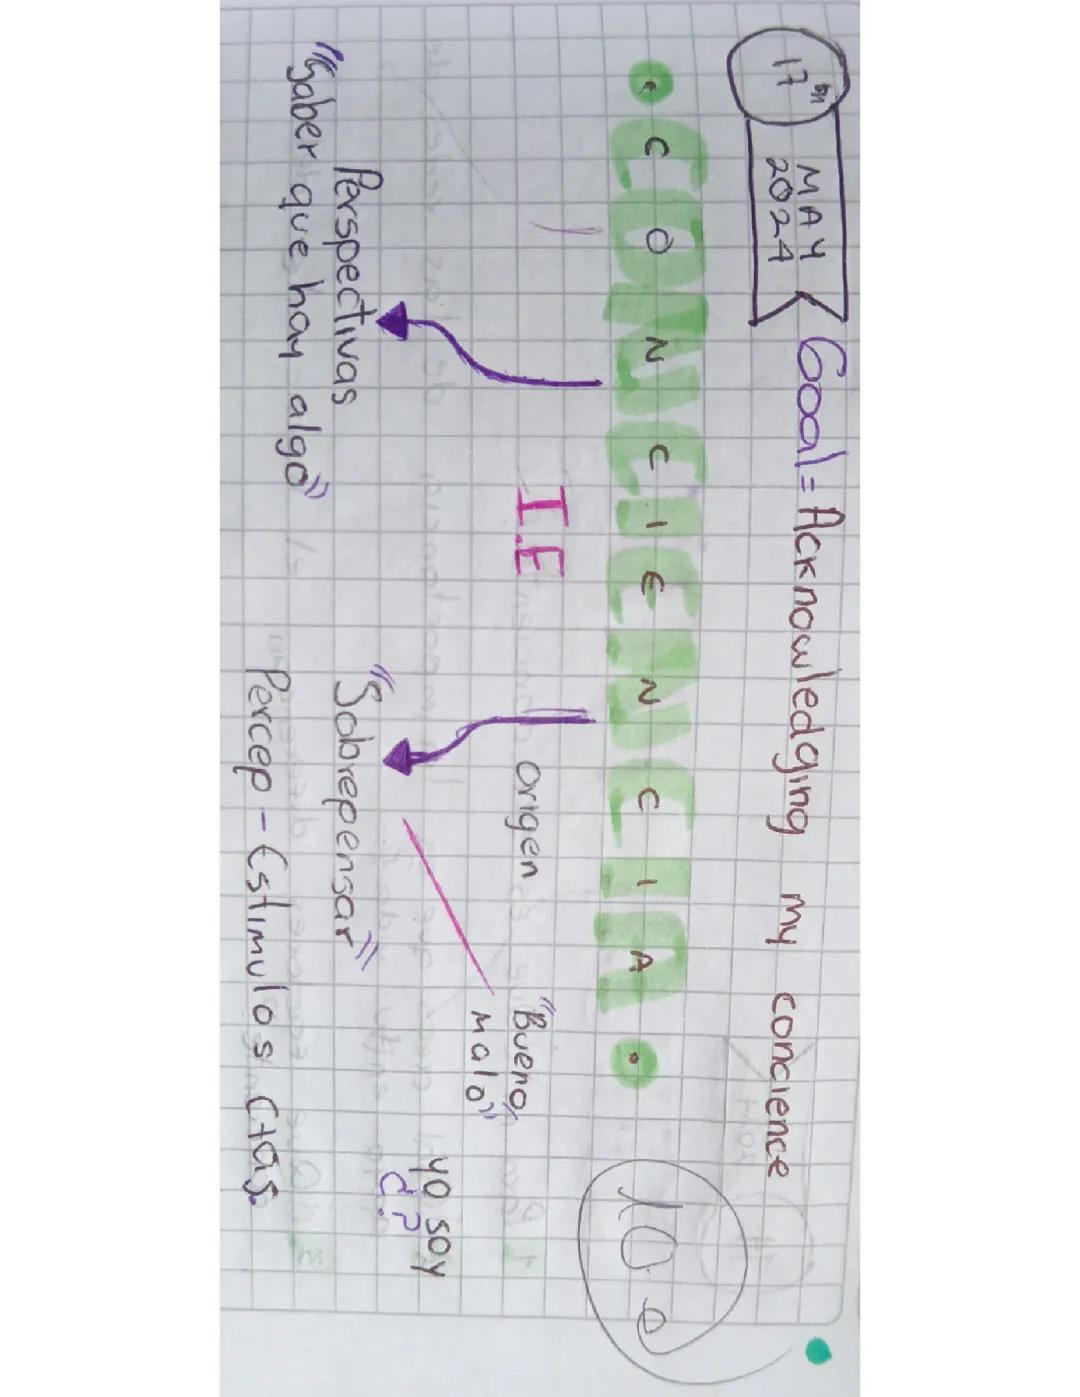 17th
MAY
2024
Goal = Acknowledging my concience
• CONCIENCIA •
10.0
I.E
Origen
"Bueno,
malo"
Perspectivas
"Saber que hay algo"
"Sobrepensar"
yo soy
¿?
Percep - Estimulos Ctas.